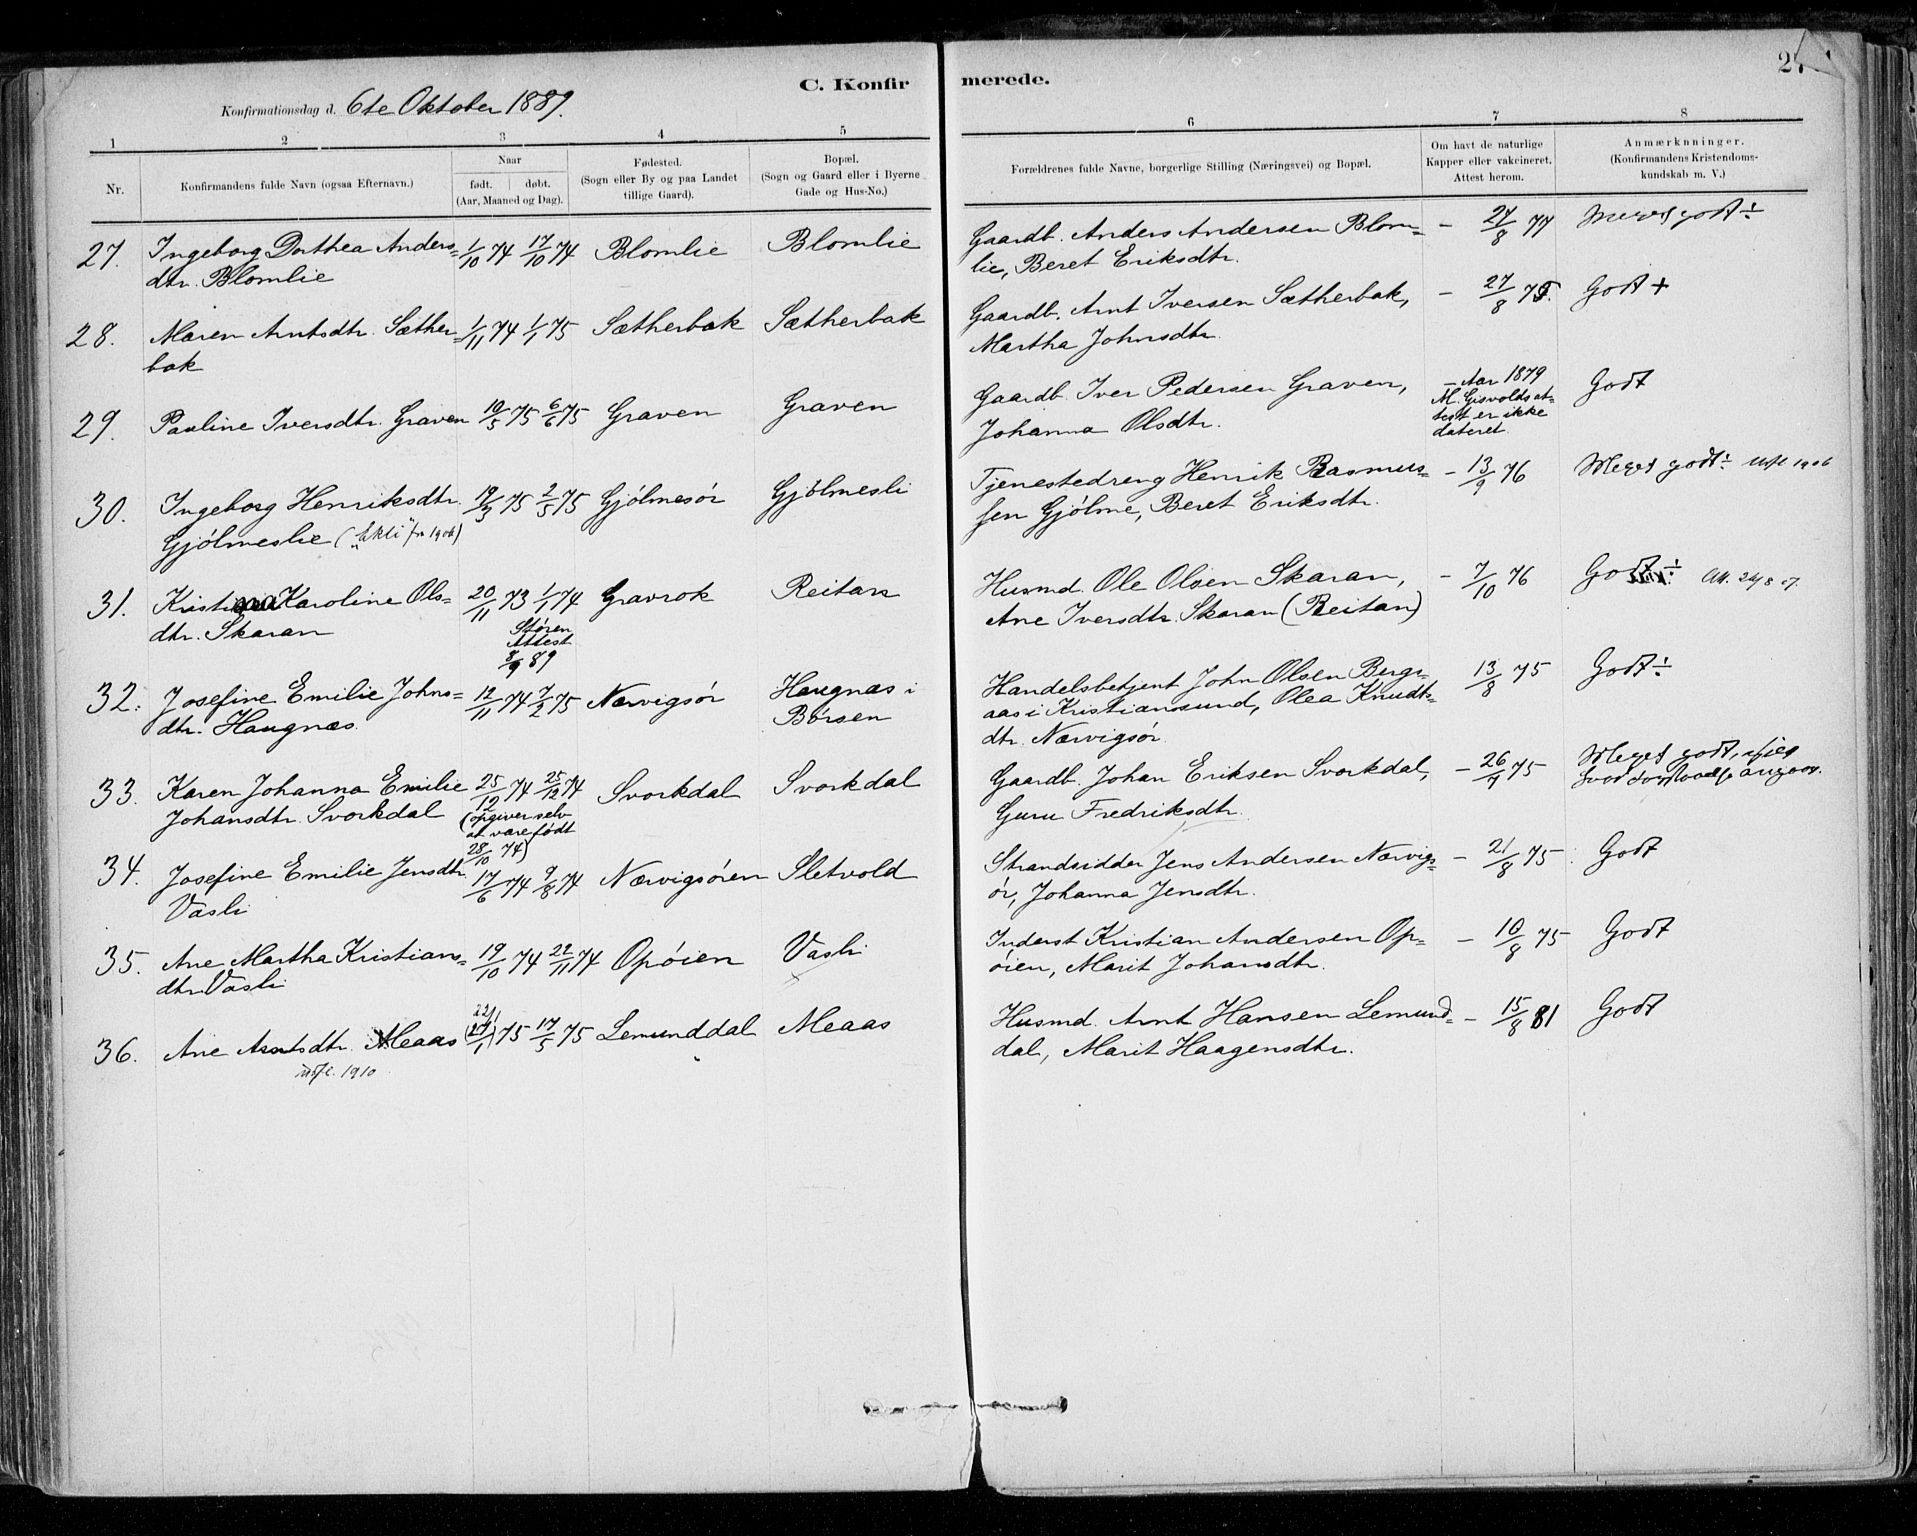 C. Konfirmerede.
27
Konfirmationsdag d. 6te Oktober 1889.
1 2 3 4 5 6 7 8
Nr.
Konfirmandens fulde Navn (ogsaa Efternavn.)
Naar
født. døbt.
(Aar, Maaned og Dag).
Fødested.
(Sogn eller By og paa Landet
tillige Gaard).
Bopæl.
(Sogn og Gaard eller i Byerne
Gade og Hus-No.)
Forældrenes fulde Navne, borgerlige Stilling (Næringsvei) og Bopæl.
Om havt de naturlige
Kapper eller vakcineret.
Attest herom.
Anmærknninger.
(Konfirmandens Kristendoms-
kundskab m. V.)
27. Ingeborg Dorthea Anders= 1/10 74 17/10 74 Blomlie Blomlie Gaardb. Anders Andersen Blom= – 27/8 77 Meget godt ÷
dtr. Blomlie lie, Beret Eriksdtr.
28. Maren Arntsdtr. Sæther= 1/11 74 1/1 75 Sætherbak Sætherbak Gaardb. Arnt Iversen Sætherbak, – 27/8 75. Godt +
bak Martha Johnsdtr.
29. Pauline Iversdtr. Graven 19/5 75 6/6 75 Graven Graven Gaardb. Iver Pedersen Graven, – Aar 1879 Godt
Johanna Olsdtr. M. Gisvolds at=
test er ikke
dateret.
30. Ingeborg Henriksdtr. 19/3 75 2/5 75 Gjölmesör Gjölmesli Tjenestedreng Henrik Rasmus= – 13/9 76 Meget godt ÷ Utfl 1906
Gjölmeslie ("Ekli" fr 1906) sen Gjölme, Beret Eriksdtr.
31. Kristina Karoline Ols= 20/11 73 1/1 74 Gavrok Reitan Husmd. Ole Olsen Skaran, – 7/10 76 Godt ÷ Att. 24/8 07.
dtr. Skaran Ane Iversdtr. Skaran (Reitan)
Støren
Attest
8/9 89
32. Josefine Emilie Johns= 12/11 74 7/2 75 Nærvigsör Haugnæs i Handelsbetjent John Olsen Bergs= 13/8 75 Godt ÷
dtr. Haugnæs. Börsen aas i Kristianssund, Olea Knudts=
dtr. Nærvigsör.
33. Karen Johanna Emilie 25/12 74 25/12 74 Svorkdal Svorkdal Gaardb. Johan Eriksen Svorkdal, – 26/9 75 Meget godt,
Johansdtr. Svorkdal (opgiver selv Guru Fredriksdtr.
at være født
28/10 74)
34. Josefine Emilie Jensdtr. 17/6 74 9/8 74 Nærvigsören Sletvold Strandsidder Jens Andersen Nærvigs= – 21/8 75. Godt
Vasli ör, Johanna Jensdtr.
35. Ane Martha Kristians= 19/10 74 22/11 74 Opöien Vasli Inderst Kristian Andersen Op= – 10/8 75 Godt
dtr Vasli öien, Marit Johansdtr.
36. Ane Arntsdtr. Meaas 22/1 75 17/5 75 Lemunddal Meaas Husmd. Arnt Hansen Lemund= – 15/8 81 Godt
utfl. 1910 dal, Marit Haagensdtr.